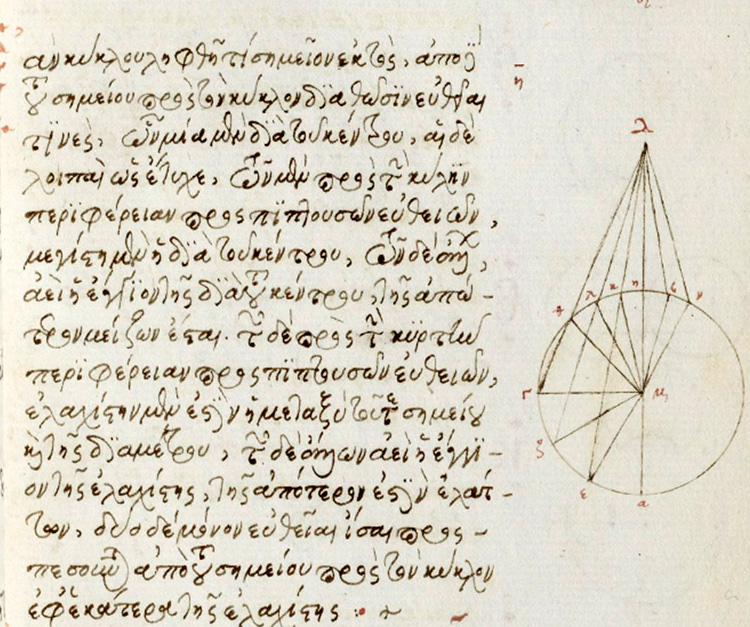 ὰν κύκλου ληφθῇ τί σημεῖον ἐκτὸς, ἀπὸ δὲ
τοῦ σημείου πρὸς τὸν κύκλον διαχθῶσιν εὐθεῖαι
η
τινὲς, ὧν μία μὲν διὰ τοῦ κέντρου, αἱ δὲ
λοιπαὶ ὡς ἔτυχε, τῶν μὲν πρὸς τὴν κοίλην
περιφέρειαν προσπιπτουσῶν εὐθειῶν,
μεγίστη μὲν ἡ διὰ τοῦ κέντρου, τῶν δὲ ἄλλων,
ἀεὶ ἡ ἔγγιον τῆς διὰ τοῦ κέντρου, τῆς ἀπώ-
τερον μείζων ἔσται. τῶν δὲ πρὸς τὴν κυρτὴν
περιφέρειαν προσπιπτουσῶν εὐθειῶν,
ἐλαχίστη μὲν ἐστὶν ἡ μεταξὺ τοῦ τε σημείου
καὶ τῆς διαμέτρου, τῶν δὲ ἄλλων ἀεὶ ἡ ἔγγι-
ον τῆς ἐλαχίστης, τῆς ἀπότερον ἐστὶν ἐλάτ-
των, δύο δὲ μόνον εὐθεῖαι ἴσαι προσ-
πεσοῦνται ἀπὸ τοῦ σημείου πρὸς τὸν κύκλον
ἐφ' ἑκάτερα τῆς ἐλαχίστης :
λ
κ η
ν
γ μ
ζ
ε α